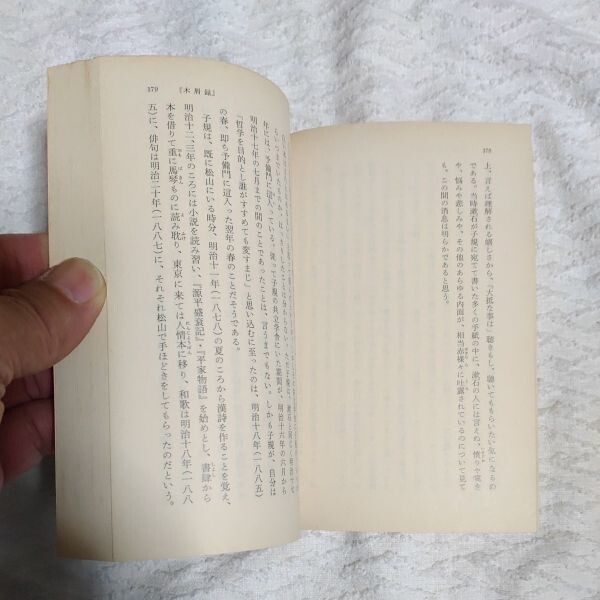 178
上、言えば理解される嬉しさから、「大抵な事は」聴きもし、聴いてももらいたい気になるもの
である。当時漱石が子規に宛てて書いた多くの手紙の中に、漱石の人には言えぬ、憤りや寃を
や、悩みや悲しみや、その他のあらゆる内面が、相当赤裸々に吐露されているのについて見て
も、この間の消息は明らかであると思う。
179 『木屑録』
年には、予備門に這入っている。従って子規の共立学舎にいた期間が、明治十六年の六月から
明治十七年の七月までの間のことであったことは、言うまでもない。しかも子規が、自分は
『哲学を目的とし誰がすすめても変すまじ』と思い込むに至ったのは、明治十八年(一八八五)
の春、即ち予備門に這入った翌年の春のことだそうである。
子規は、既に松山にいる時分、明治十一年(一八七八)の夏のころから漢詩を作ることを覚え、
明治十二、三年のころには小説を読み習い、『源平盛衰記』・『平家物語』を始めとし、書肆から
本を借りて重に馬琴ものに読み耽り、東京に来ては人情本に移り、和歌は明治十八年(一八八
五)に、俳句は明治二十年(一八八七)に、それぞれ松山で手ほどきをしてもらったのだという。